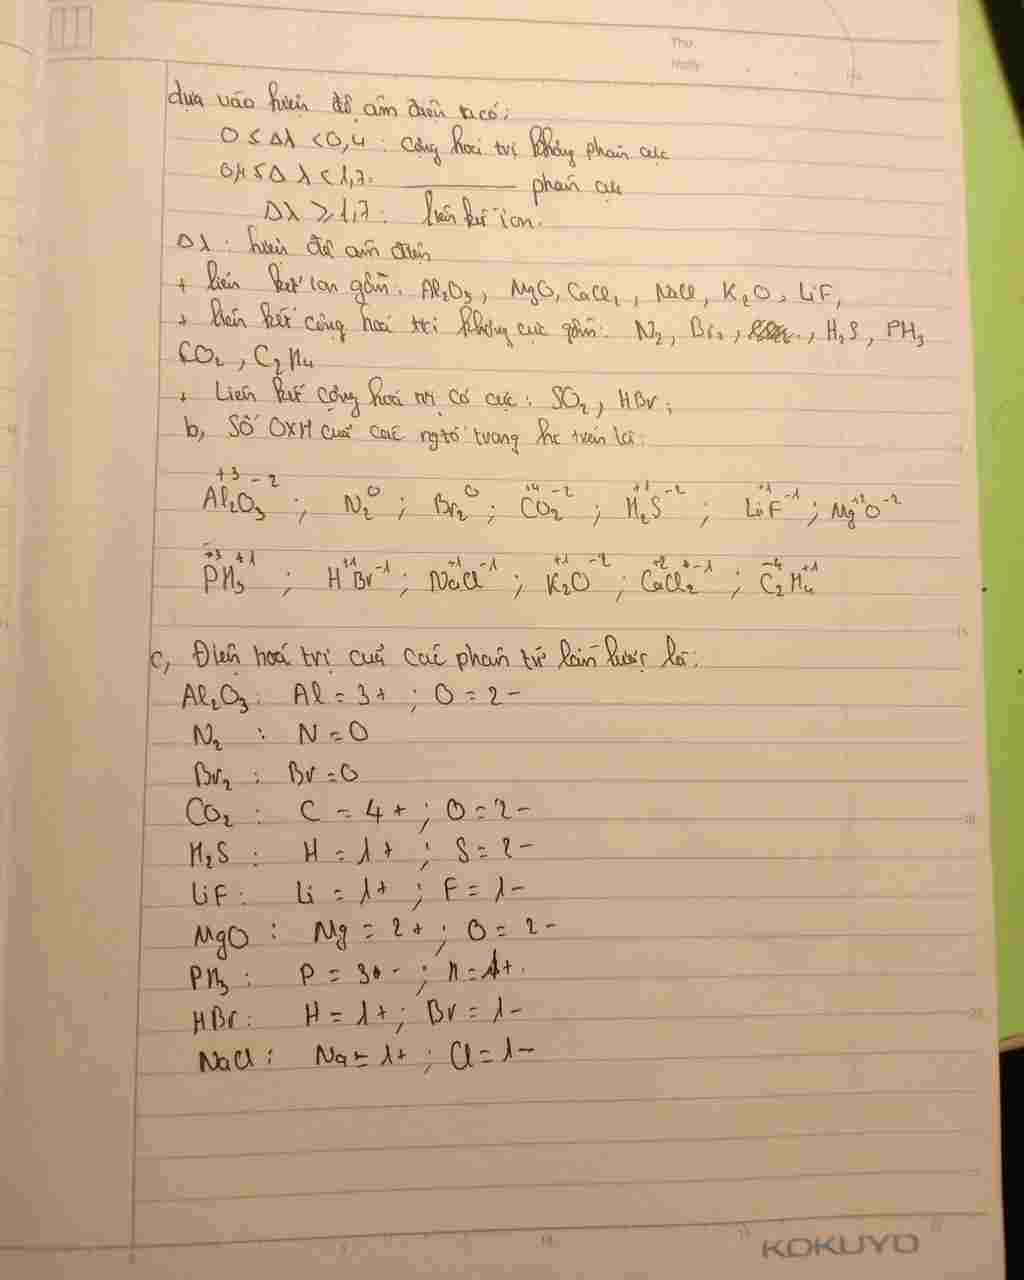 Thu
Ngày
dựa vào hiệu độ âm điện ta có:
0 ≤ Δλ < 0,4 : cộng hoá trị không phân cực
0,4 ≤ Δλ < 1,7. ———— phân cực
Δλ ≥ 1,7 : liên kết ion.
Δλ : hiệu độ âm điện
+ liên kết ion gồm: Al₂O₃, MgO, CaCl₂, NaCl, K₂O, LiF,
+ liên kết cộng hoá trị không cực gồm: N₂, Br₂, H₂S, PH₃
CO₂, C₂H₄
+ Liên kết cộng hoá trị có cực: SO₂, HBr;
b, Số OXH của các ngtố trong hc trên là:
+3 -2
Al₂O₃ ; N₂⁰ ; Br₂⁰ ; C⁺⁴O₂⁻² ; H₂⁺¹S⁻² ; Li⁺¹F⁻¹ ; Mg⁺²O⁻²
P⁻³H₃⁺¹ ; H⁺¹Br⁻¹ ; Na⁺¹Cl⁻¹ ; K₂⁺¹O⁻² ; Ca⁺²Cl₂⁻¹ ; C₂⁻⁴H₄⁺¹
c, Điện hoá trị của các phân tử lần lược là:
Al₂O₃ : Al = 3+ ; O = 2-
N₂ : N = 0
Br₂ : Br = 0
CO₂ : C = 4+ ; O = 2-
H₂S : H = 1+ ; S = 2-
LiF : Li = 1+ ; F = 1-
MgO : Mg = 2+ ; O = 2-
PH₃ : P = 3- ; H = 1+.
HBr : H = 1+ ; Br = 1-
NaCl : Na = 1+ ; Cl = 1-
KOKUYO